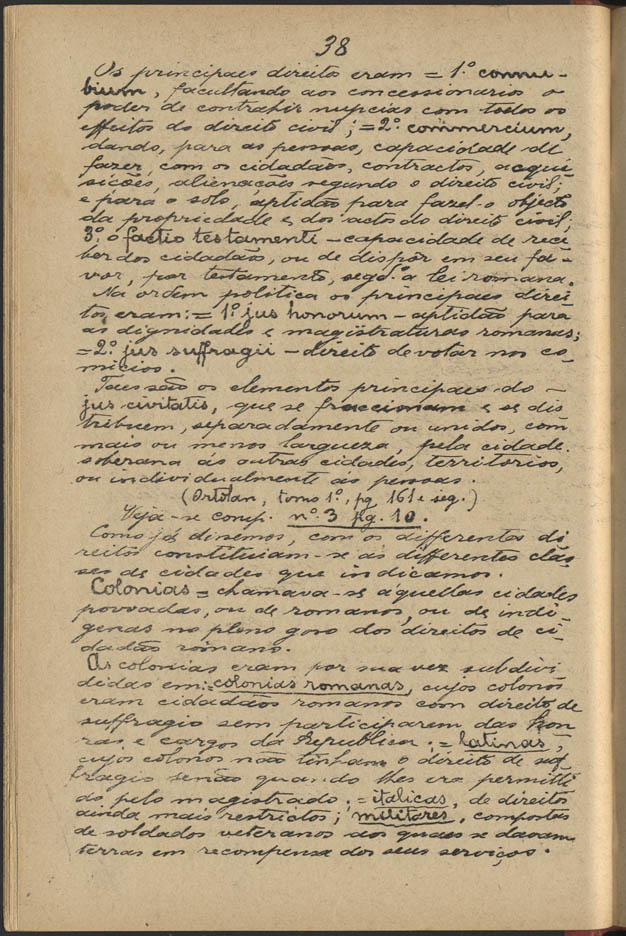 38
Os principaes direitos eram = 1.º connu-
bium, facultando aos concessionarios o
poder de contrahir nupcias com todos os
effeitos do direito civil; = 2.º commercium,
dando, para as pessoas, capacidade de
fazer, com os cidadãos, contractos, acqui
sições, alienações segundo o direito civil;
e para o solo, aptidão para fazel-o objecto
da propriedade e dos actos do direito civil;
3.º o factio testamenti - capacidade de rece
ber dos cidadãos, ou de dispôr em seu fa-
vor, por testamento, segd.º a lei romana.
Na ordem politica os principaes direi
tos eram: = 1.º jus honorum - aptidão para
as dignidades e magistraturas romanas;
= 2.º jus suffragii - direito de votar nos co_
micios.
Taes são os elementos principaes do -
jus civitatis, que se fraccionam e se dis
tribuem, separadamente ou unidos, com
mais ou menos largueza, pela cidade
soberana ás outras cidades, territorios,
ou individualmente as pessoas.
(Ortolan, tomo 1.º, pg 161 e seg.)
Veja-se comp. n.º 3 pg. 10.
Como já dissemos, com os differentes di
reitos constituiam-se as differentes clas
ses de cidades que indicamos.
Colonias = chamava-se aquellas cidades
povoadas, ou de romanos, ou de indi-
genas no pleno goso dos direitos de ci_
dadãos romano.
As colonias eram por sua vez subdivi
didas em: = colonias romanas, cujos colonos
eram cidadãos romanos com direito de
suffragio sem participarem das hon
ras e cargos da Republica; = latinas,
cujos colonos não tinham o direito de suf
fragio senão quando lhes era permitti
do pelo magistrado; = italicas, de direitos
ainda mais restrictos; militares, compostas
de soldados veteranos aos quaes se davam
terras em recompensa dos seus serviços.